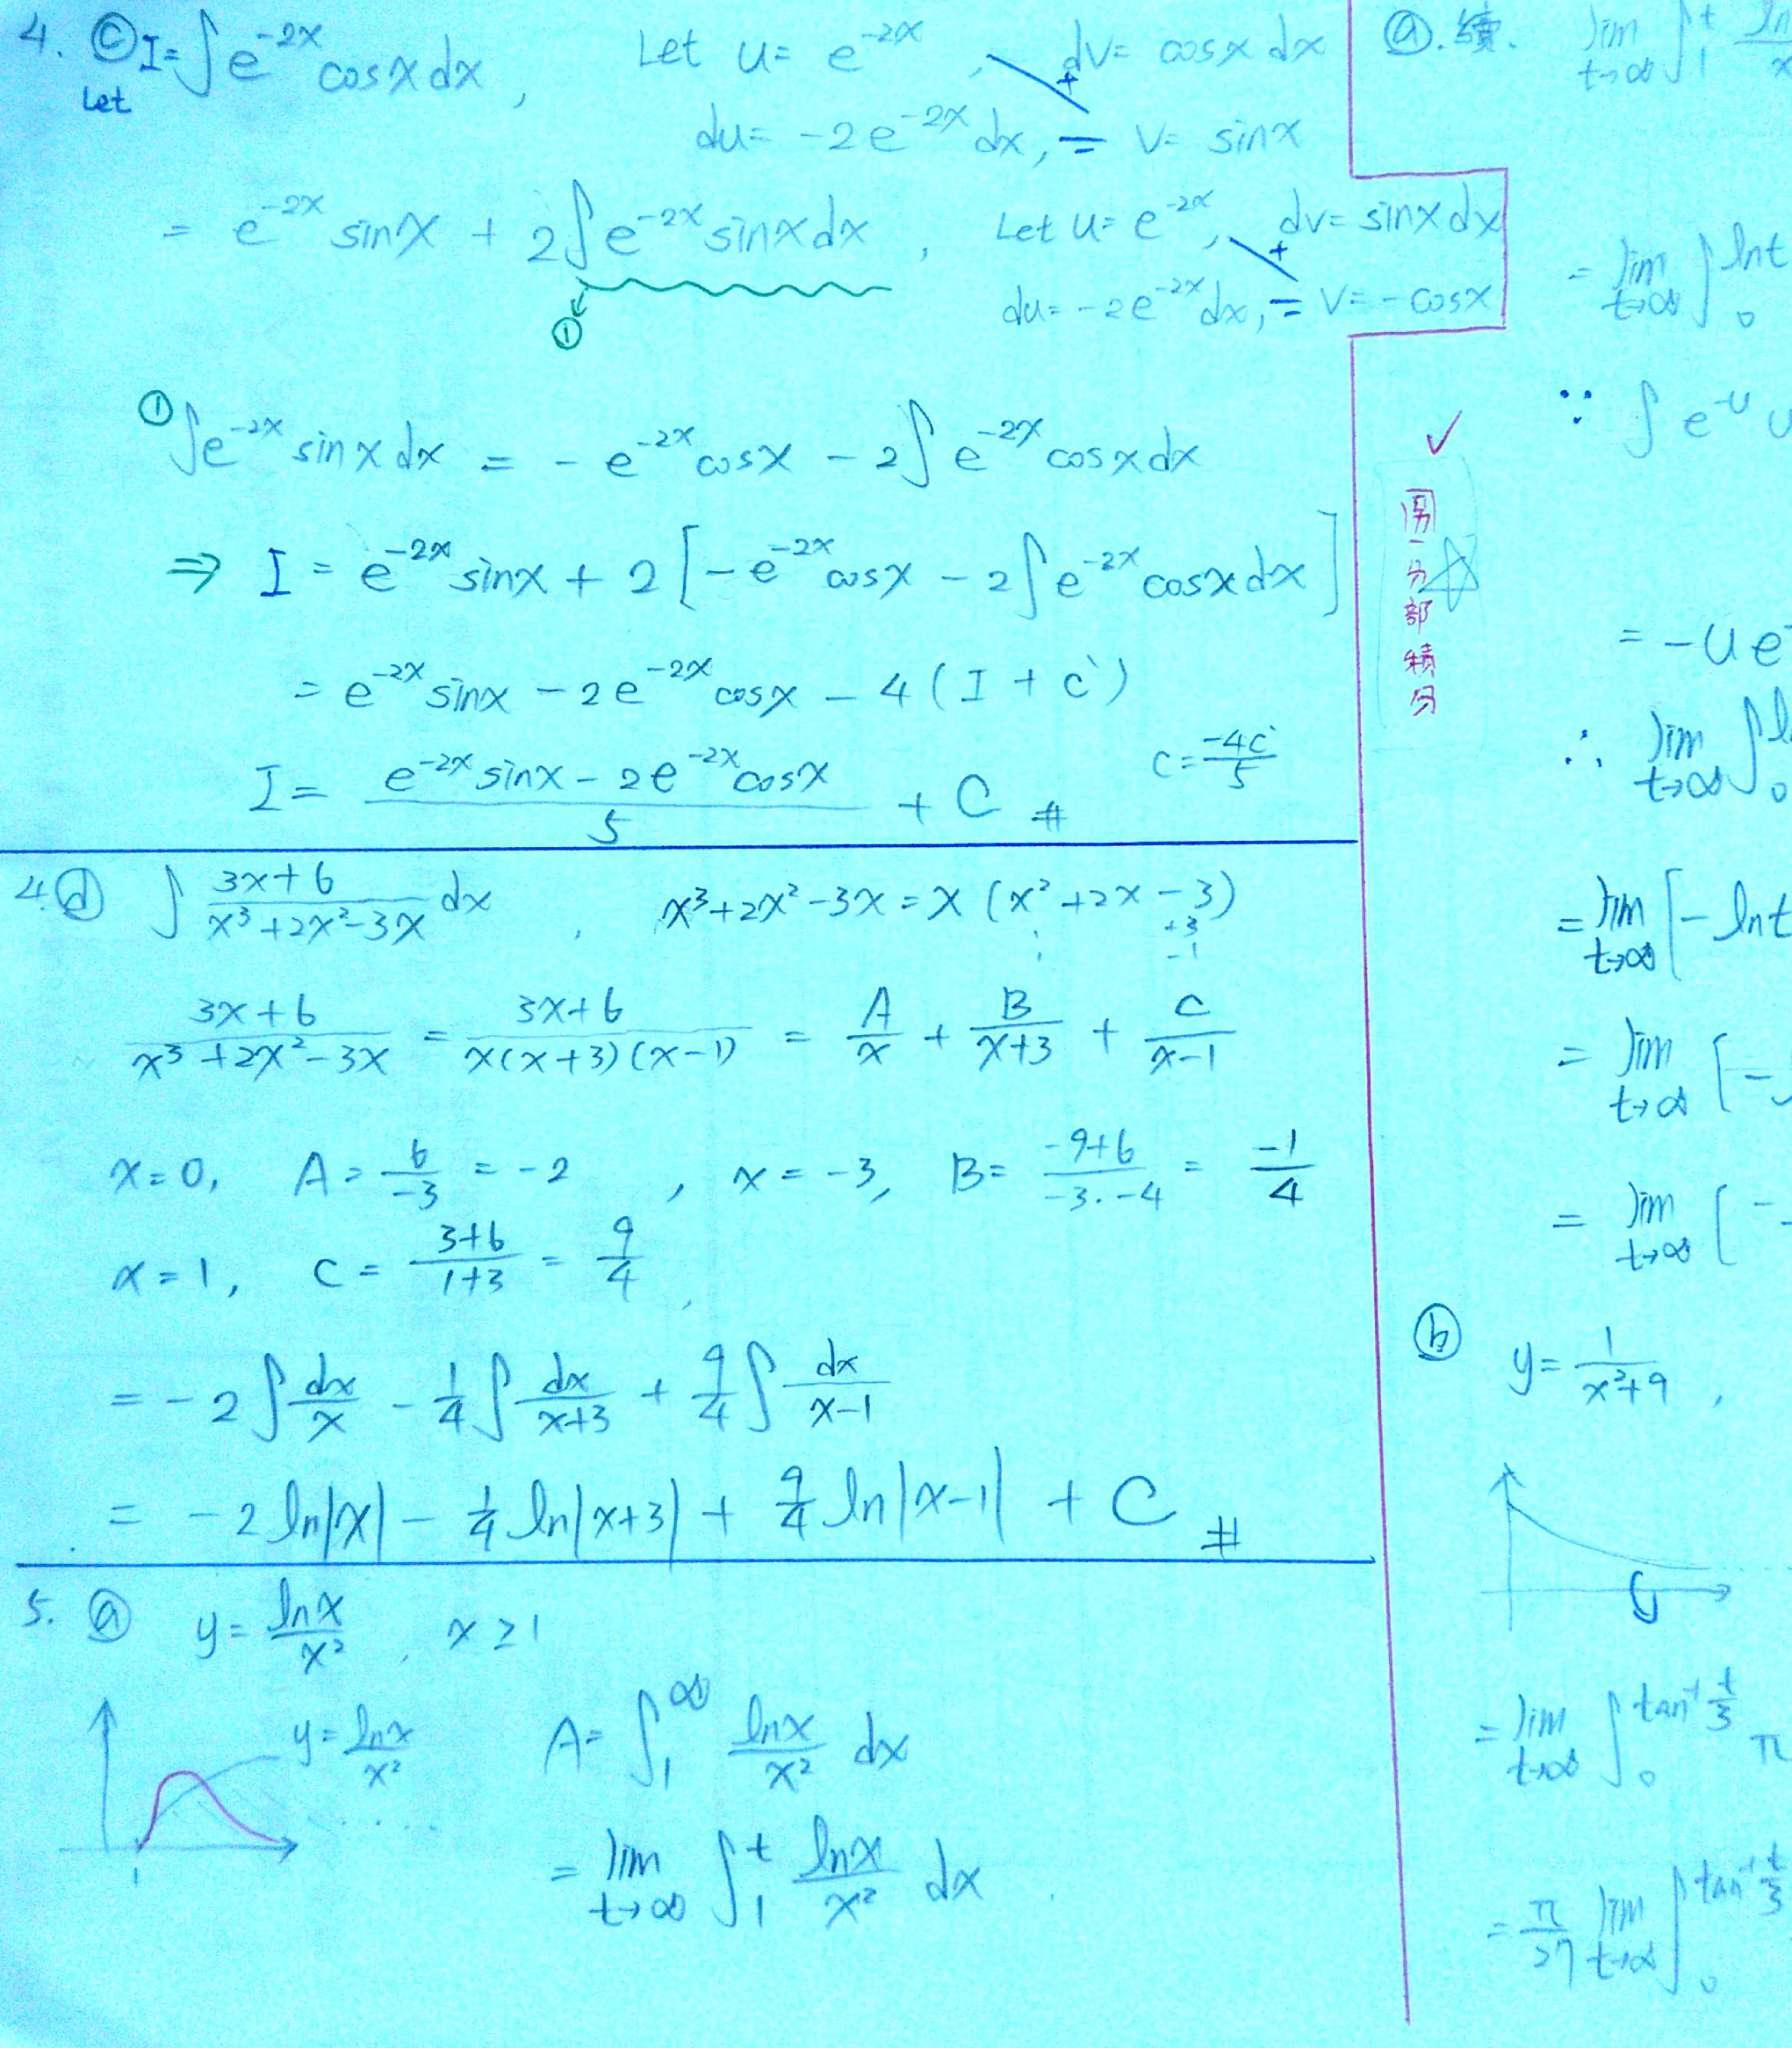 4. ⓒ I = ∫ e^{-2x} cosx dx , Let u = e^{-2x} , dv = cosx dx
Let
du = -2e^{-2x} dx, v = sinx
= e^{-2x} sinx + 2∫ e^{-2x} sinx dx , Let u = e^{-2x}, dv = sinx dx
①
du = -2e^{-2x} dx, v = -cosx
① ∫ e^{-2x} sinx dx = - e^{-2x} cosx - 2∫ e^{-2x} cosx dx
⇒ I = e^{-2x} sinx + 2 [ -e^{-2x} cosx - 2∫ e^{-2x} cosx dx ]
= e^{-2x} sinx - 2e^{-2x} cosx - 4 ( I + c` )
I = \frac{e^{-2x} sinx - 2e^{-2x} cosx}{5} + C # c = \frac{-4c`}{5}
4. ⓓ ∫ \frac{3x+6}{x^3+2x^2-3x} dx , x^3+2x^2-3x = x (x^2+2x-3)
+3
-1
\frac{3x+6}{x^3+2x^2-3x} = \frac{3x+6}{x(x+3)(x-1)} = \frac{A}{x} + \frac{B}{x+3} + \frac{C}{x-1}
x=0, A = \frac{6}{-3} = -2 , x = -3, B = \frac{-9+6}{-3·-4} = \frac{-1}{4}
x=1, C = \frac{3+6}{1+3} = \frac{9}{4}
= -2∫\frac{dx}{x} - \frac{1}{4}∫\frac{dx}{x+3} + \frac{9}{4}∫\frac{dx}{x-1}
= -2 ln|x| - \frac{1}{4} ln|x+3| + \frac{9}{4} ln|x-1| + C #
5. ⓐ y = \frac{lnx}{x^2} , x ≥ 1
y = \frac{lnx}{x^2}
1
A = ∫_1^∞ \frac{lnx}{x^2} dx
= lim_{t→∞} ∫_1^t \frac{lnx}{x^2} dx
ⓐ. 續. lim_{t→∞} ∫_1^t \frac{ln}{x}
= lim_{t→∞} ∫_0^{lnt}
∵ ∫ e^{-u} u
✓
另一分部積分
= -u e
∴ lim_{t→∞} ∫_0
= lim_{t→∞} [ - lnt
= lim_{t→∞} [ -
= lim_{t→∞} [ -
ⓑ y = \frac{1}{x^2+9} ,
= lim_{t→∞} ∫_0^{tan^{-1} \frac{t}{3}} π
= \frac{π}{27} lim_{t→∞} ∫_0^{tan^{-1} \frac{t}{3}}